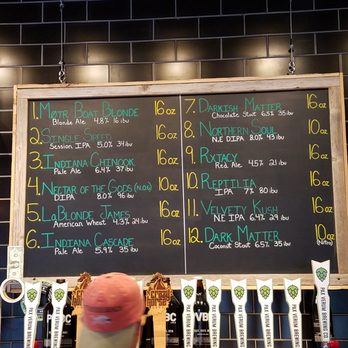 1. Møtr Boat Blonde 16 oz
Blonde Ale 4.8% 16 ibu
2. Single Speed 16 oz
Session IPA 5.0% 34 ibu
3. Indiana Chinook 16 oz
Pale Ale 6.4% 37 ibu
4. Nectar of the Gods (NOG) 10 oz
DIPA 8.0% 96 ibu
5. LaBlonde James 16 oz
American Wheat 4.3% 24 ibu
6. Indiana Cascade 16 oz
Pale Ale 5.9% 35 ibu
7. Darkish Matter 16 oz
Chocolate Stout 6.5% 35 ibu
8. Northern Soul 10 oz
N.E DIPA 8.0% 43 ibu
9. Rxtacy 16 oz
Red Ale 4.5% 21 ibu
10. Reptilia 16 oz
IPA 7% 80 ibu
11. Velvety Kush 16 oz
NE IPA 6.4% 29 ibu
12. Dark Matter 10 oz
Coconut Stout 6.5% 35 ibu (Nitro)